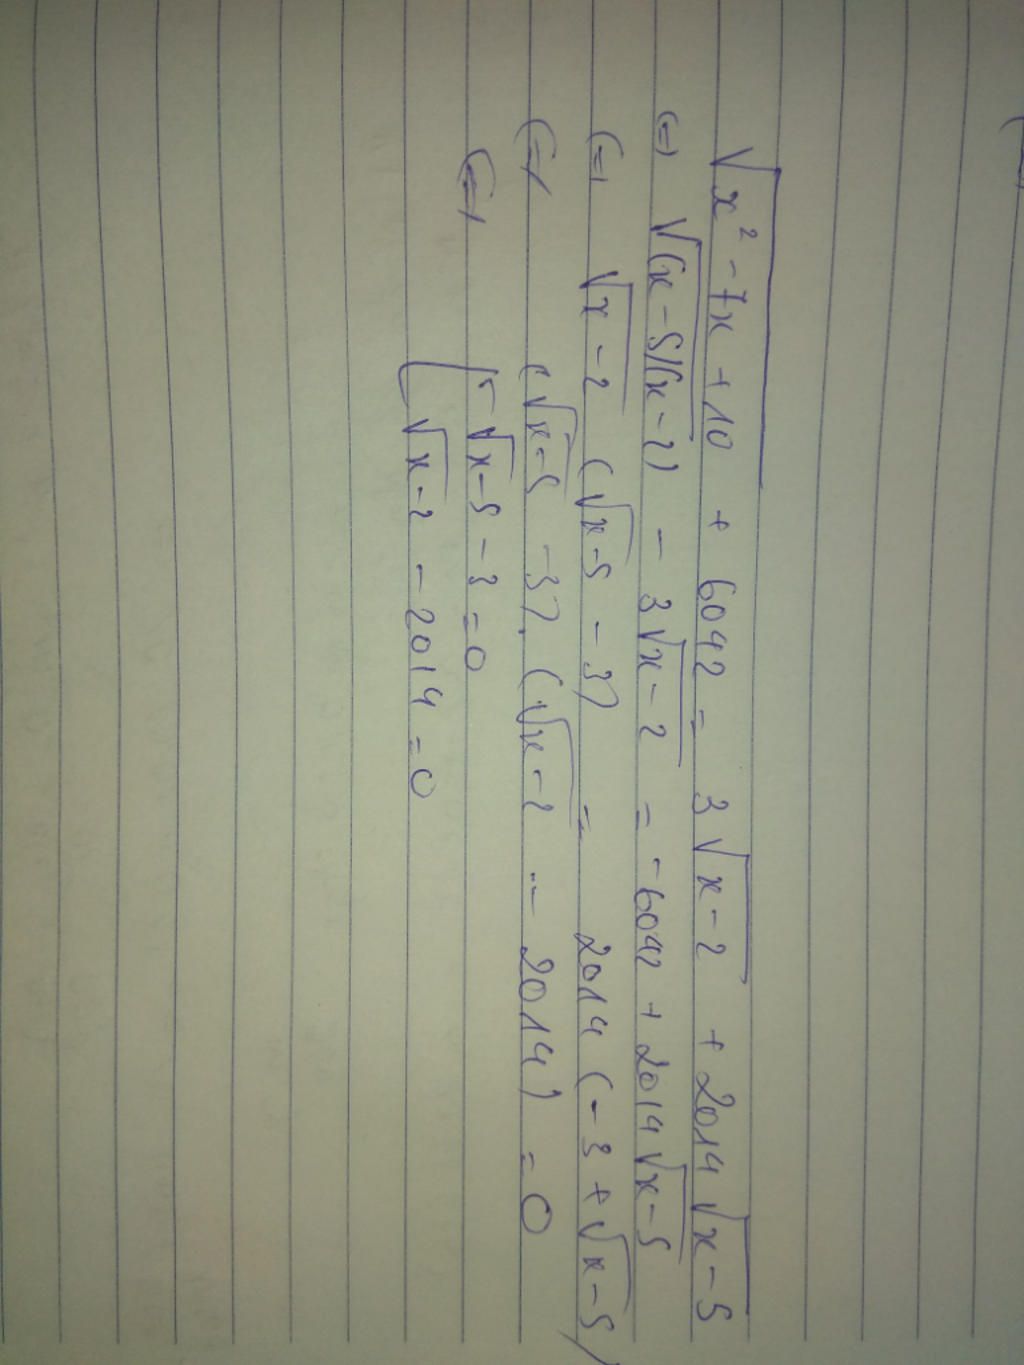 √(x² - 7x + 10) + 6042 = 3√(x-2) + 2014√(x-5)
(=) √((x-5)(x-2)) - 3√(x-2) = -6042 + 2014√(x-5)
(=) √(x-2) (√(x-5) - 3) = 2014 (-3 + √(x-5))
(=) (√(x-5) - 3). (√(x-2) - 2014) = 0
(=) [ √(x-5) - 3 = 0
√(x-2) - 2014 = 0